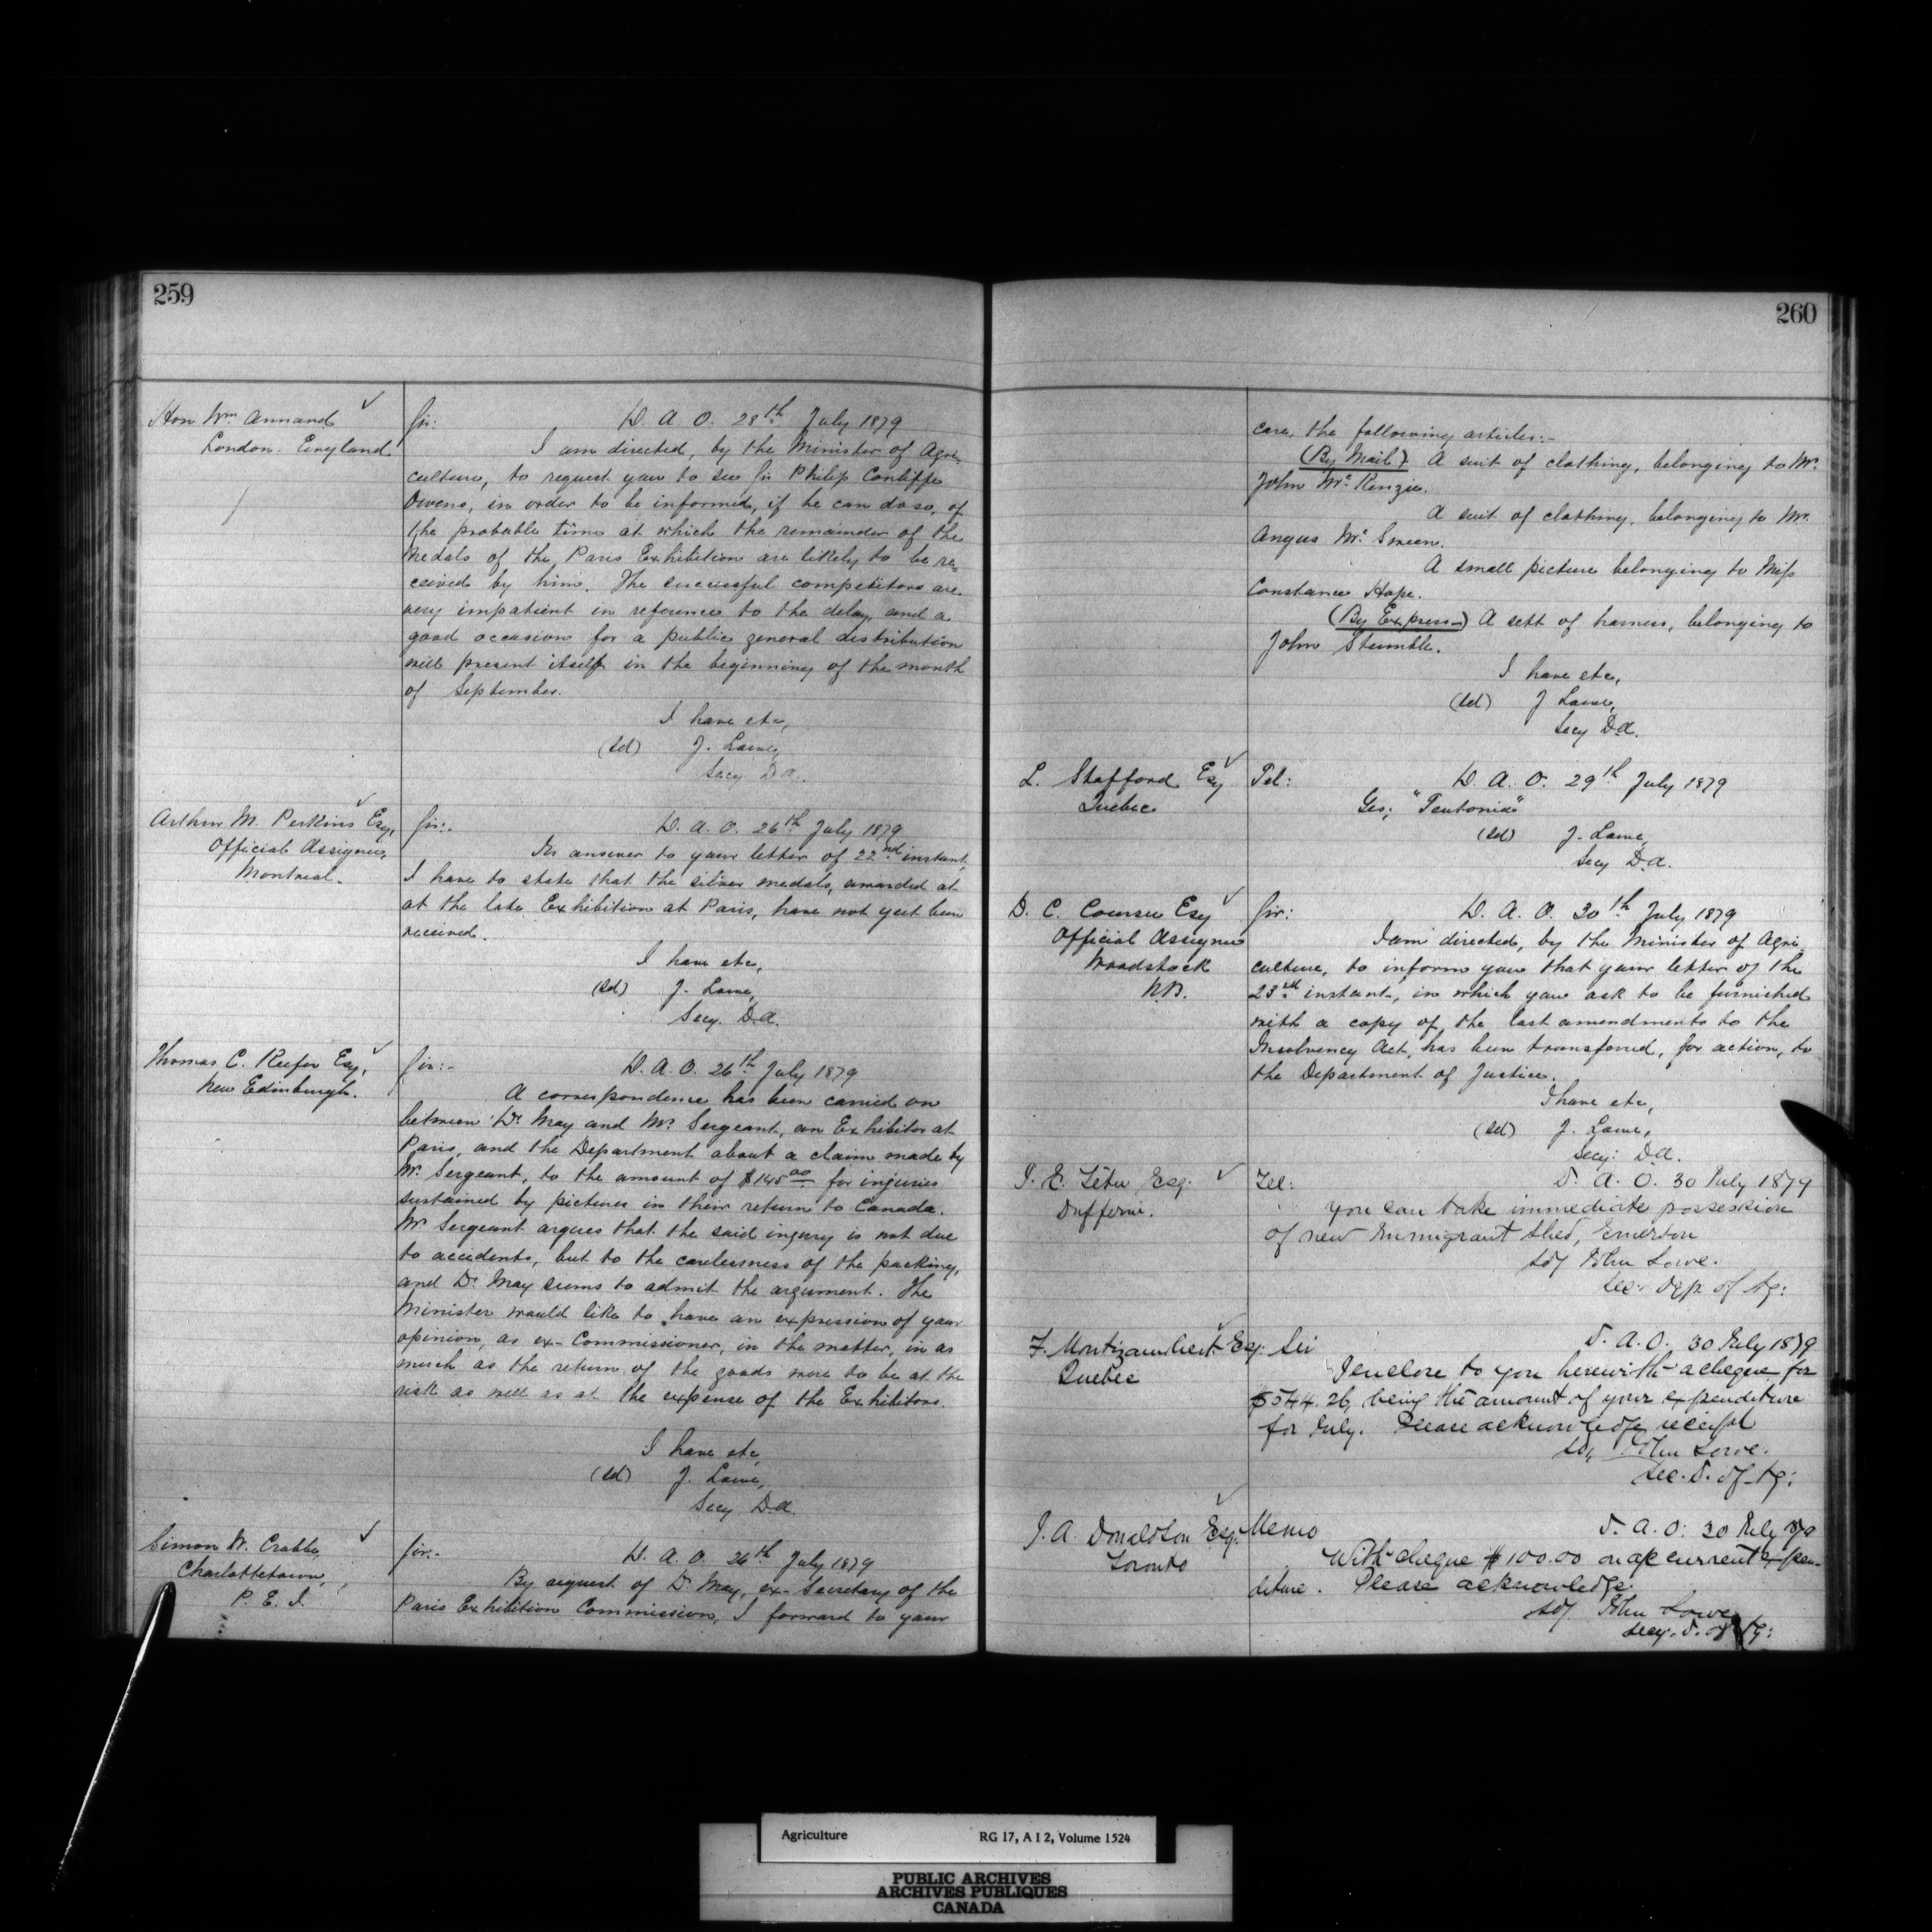 259
Hon Wm Annand
London. England
Sir: D. A. O. 28th July 1879
I am directed, by the Minister of Agri-
culture, to request you to see Sir Philip Cunliffe
Owens, in order to be informed, if he can do so, of
the probable time at which the remainder of the
Medals of the Paris Exhibition are likely to be re-
ceived by him. The successful competitors are
very impatient in reference to the delay, and a
good occasion for a public general distribution
will present itself in the beginning of the month
of September.
I have etc,
(Sd) J. Lowe,
Secy D.A.
Arthur M. Perkins Esq,
Official Assignee,
Montreal.
Sir:- D. A. O. 26th July 1879
In answer to your letter of 22nd instant,
I have to state that the silver medals, awarded at
at the late Exhibition at Paris, have not yet been
received.
I have etc,
(Sd) J. Lowe,
Secy. D.A.
Thomas C. Keefer Esq,
New Edinburgh.
Sir:- D. A. O. 26th July 1879
A correspondence has been carried on
between Dr May and Mr Sergeant, an Exhibitor at
Paris, and the Department about a claim made by
Mr Sergeant, to the amount of $145.00 for injuries
sustained by pictures in their return to Canada.
Mr Sergeant argues that the said injury is not due
to accidents, but to the carelessness of the packing,
and Dr May seems to admit the argument. The
Minister would like to have an expression of your
opinion, as ex-Commissioner, in the matter, in as
much as the return of the goods were to be at the
risk as well as at the expense of the Exhibitors.
I have etc,
(Sd) J. Lowe,
Secy D.A.
Simon W. Crabbe,
Charlottetown,
P. E. I.
Sir:- D. A. O. 26th July 1879
By request of Dr May, ex-Secretary of the
Paris Exhibition Commission, I forward to your
260
care, the following articles:-
(By Mail) A suit of clothing, belonging to Mr.
John McKenzie.
A suit of clothing, belonging to Mr.
Angus McSween.
A small picture belonging to Miss
Constance Hope.
(By Express) A sett of harness, belonging to
John Stumble.
I have etc,
(Sd) J Lowe,
Secy D.A.
L. Stafford Esq
Quebec
Tel: D. A. O. 29th July 1879
Yes; "Teutonia"
(Sd) J. Lowe,
Secy D.A.
D. C. Esq
Official Assignee
Woodstock
N.B.
Sir: D. A. O. 30th July 1879
I am directed, by the Minister of Agri-
culture, to inform you that your letter of the
23rd instant, in which you ask to be furnished
with a copy of the last amendments to the
Insolvency Act, has been transferred, for action, to
the Department of Justice.
I have etc,
(Sd) J. Lowe,
Secy: D.A.
J. E. Têtu Esq.
Dufferin.
Tel: D. A. O. 30 July 1879
You can take immediate possession
of new Immigrant Shed, Emerson
Sd/ John Lowe.
Sec. Dep. of Ag:
F. Montizambert Esq:
Quebec
Sir D. A. O. 30 July 1879
I enclose to you herewith a cheque for
$544.26, being the amount of your expenditure
for July. Please acknowledge receipt
Sd, John Lowe.
Sec. D. of Ag:
J. A. Donaldson Esq.
Toronto
Memo D. A. O: 30 July 79
With cheque $100.00 on a/c current expen-
diture. Please acknowledge.
Sd/ John Lowe
Secy. D. of Ag:
Agriculture RG 17, A I 2, Volume 1524
PUBLIC ARCHIVES
ARCHIVES PUBLIQUES
CANADA